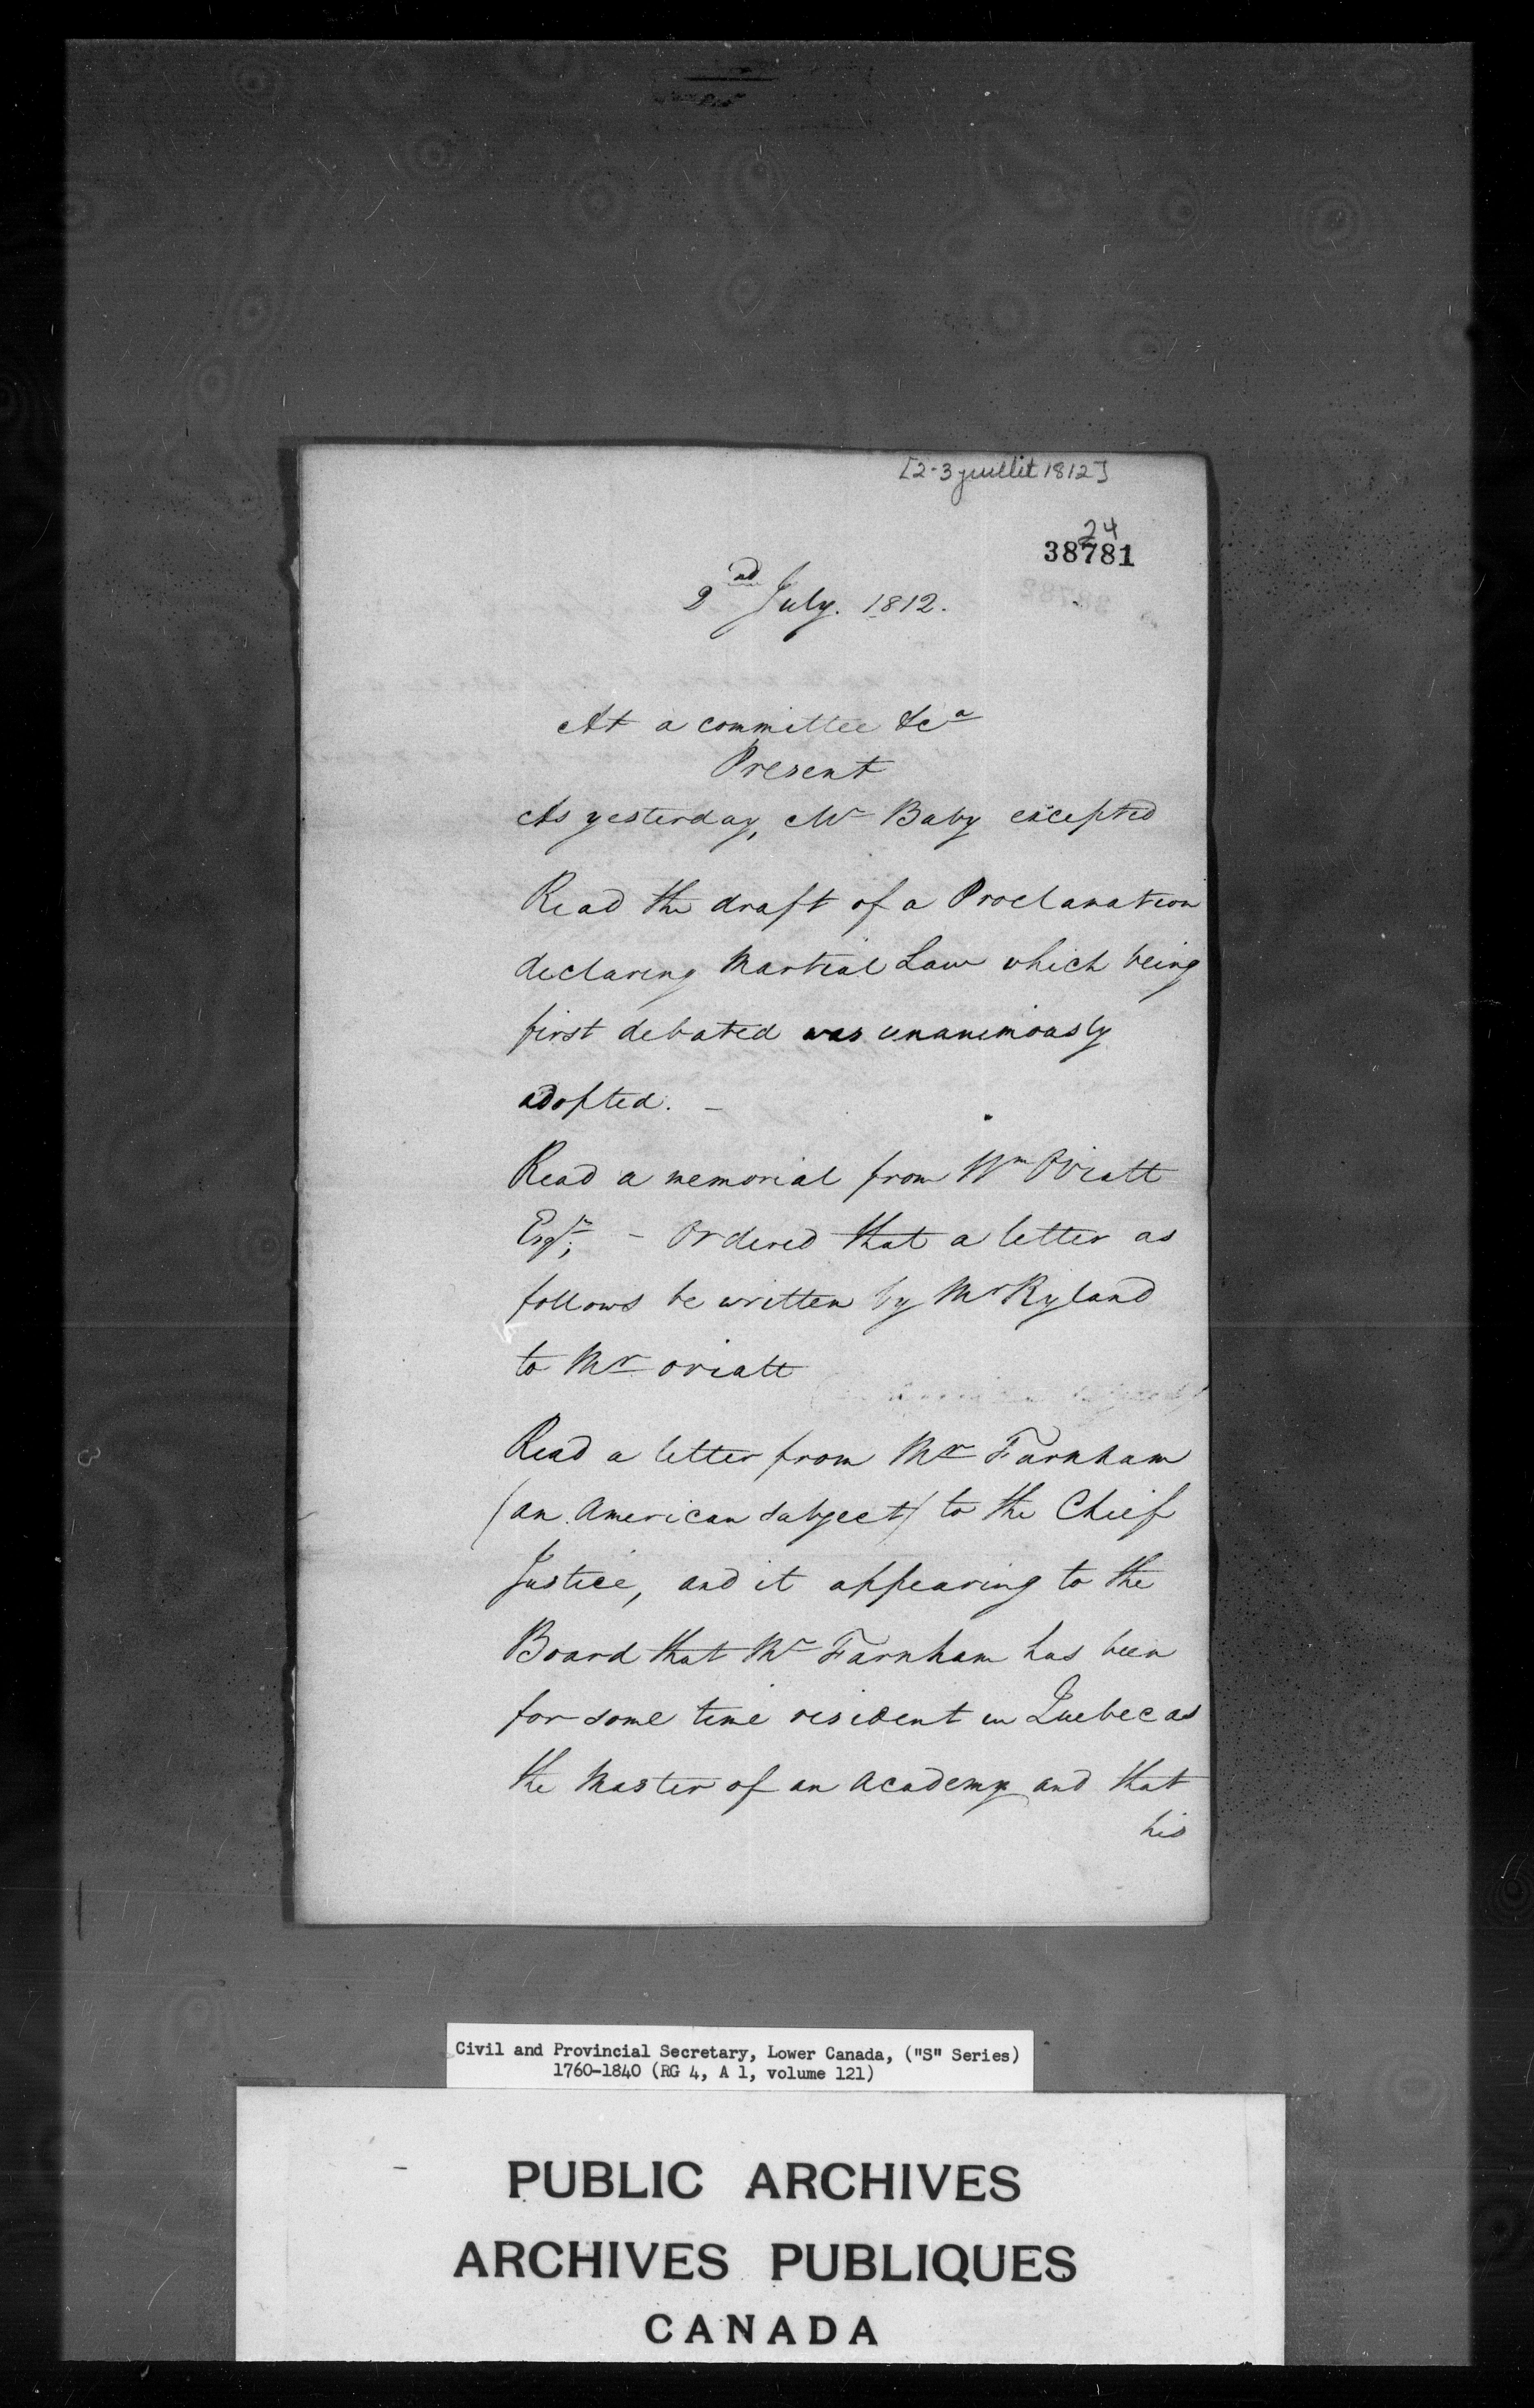 [2-3 juillet 1812]
24
38781
2nd July. 1812.
At a committee &ca
Present
As yesterday, Mr Baby excepted
Read the draft of a Proclamation
declaring Martial Law which being
first debated was unanimously
adopted. -
Read a memorial from Wm Oviatt
Esqr; - Ordered that a letter as
follows be written by Mr Ryland
to Mr Oviatt
Read a letter from Mr Farnham
(an American subject) to the Chief
Justice, and it appearing to the
Board that Mr Farnham has been
for some time resident in Quebec as
the Master of an Academy and that
his
Civil and Provincial Secretary, Lower Canada, ("S" Series)
1760-1840 (RG 4, A 1, volume 121)
PUBLIC ARCHIVES
ARCHIVES PUBLIQUES
CANADA